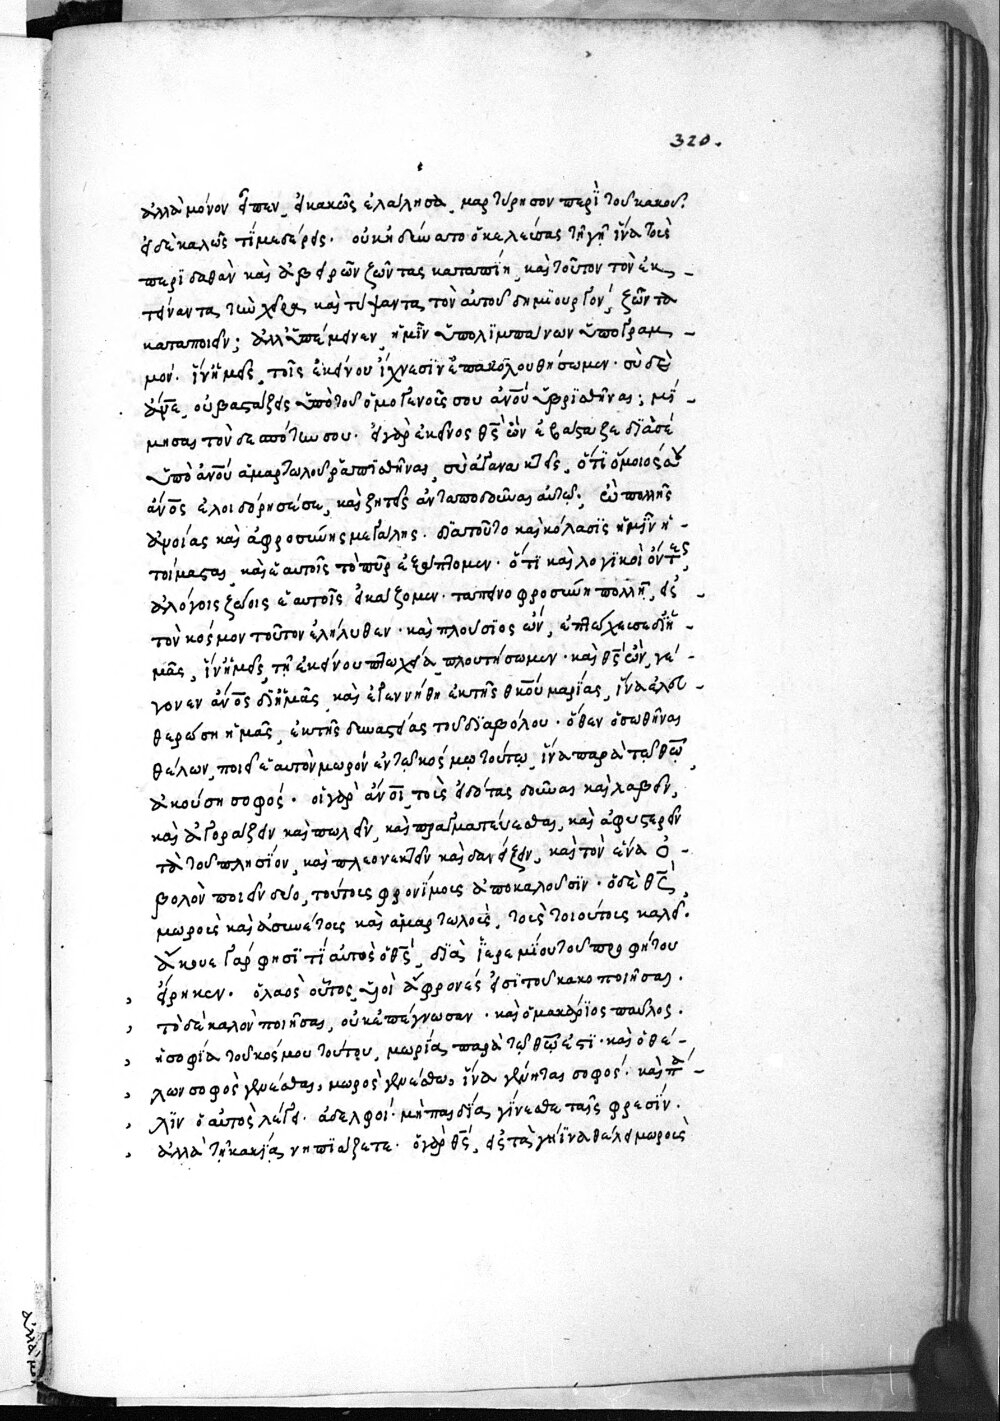 320.
ἀλλὰ μόνον εἶπεν, εἰ κακῶς ἐλάλησα, μαρτύρησον περὶ τοῦ κακοῦ.
εἰ δὲ καλῶς τί με δέρεις. οὐκ ἠδύνατο ὁ κελεύσας τῇ γῇ ἵνα τοὺς
περὶ δαθὰν καὶ ἀβειρῶν ζῶντας καταπίῃ, καὶ τοῦτον τὸν ἐκ-
τείναντα τὴν χεῖρα καὶ τύψαντα τὸν αὐτοῦ δημιουργόν, ζῶντα
καταποιεῖν; ἀλλ' ὑπέμεινεν, ἡμῖν ὑπολιμπάνων ὑπογραμ-
μόν. ἵν' ἡμεῖς, τοῖς ἐκείνου ἴχνεσιν ἐπακολουθήσωμεν. σὺ δὲ
οὐ βαστάζεις ὑπὸ τοῦ ὁμογενοῦς σου ἀνου ὑβρισθῆναι; μί-
μησαι τὸν δεσπότην σου. εἰ γὰρ ἐκεῖνος θς ὢν ἐβάσταζε διὰ σὲ
ὑπὸ ἀνου ἁμαρτωλοῦ ῥαπισθῆναι, σὺ ἀγανακτεῖς, ὅτι ὅμοιός σου
ἄνος ἐλοιδόρησέ σε, καὶ ζητεῖς ἀνταποδοῦναι αὐτῷ; ὢ πολλῆς
ἀνοίας καὶ ἀφροσύνης μεγάλης. διὰ τοῦτο καὶ κόλασις ἡμῖν ἡ-
τοίμασται, καὶ ἑαυτοῖς τὸ πῦρ ἐξάπτομεν. ὅτι καὶ λογικοὶ ὄντες,
ἀλόγοις ζώοις ἑαυτοῖς εἰκάζομεν. ταπεινοφροσύνη πολλῇ, εἰς
τὸν κόσμον τοῦτον ἐλήλυθεν. καὶ πλούσιος ὤν, ἐπτώχευσε δι' ἡ-
μᾶς, ἵν' ἡμεῖς, τῇ ἐκείνου πτωχείᾳ πλουτήσωμεν. καὶ θς ὤν, γέ-
γονεν ἄνος δι' ἡμᾶς, καὶ ἐγεννήθη ἐκ τῆς θκου μαρίας, ἵνα ἐλευ-
θερώσῃ ἡμᾶς, ἐκ τῆς δυναστείας τοῦ διαβόλου. ὅθεν ὁ σωθῆναι
θέλων, ποιεῖ ἑαυτὸν μωρὸν ἐν τῷ κόσμῳ τούτῳ, ἵνα παρὰ τῷ θῶ
ἀκούσῃ σοφός. οἱ γὰρ ἄνοι, τοὺς εἰδότας δοῦναι καὶ λαβεῖν,
καὶ ἀγοράζειν καὶ πωλεῖν, καὶ πραγματεύεσθαι, καὶ ἀφυστερεῖν
τὰ τοῦ πλησίον, καὶ πλεονεκτεῖν καὶ δανείζειν, καὶ τὸν ἕνα ὀ-
βολὸν ποιεῖν δύο, τούτοις φρονίμοις ἀποκαλοῦσιν. ὁ δὲ θς,
μωροὺς καὶ ἀσυνέτοις καὶ ἁμαρτωλοὺς, τοὺς τοιούτοις καλεῖ.
ἄκουε γάρ φησι τί αὐτὸς ὁ θς, διὰ ἱερεμίου τοῦ προφήτου
εἴρηκεν. ὁ λαὸς οὗτος, υἱοὶ ἄφρονές εἰσι τοῦ κακοποιῆσαι.
τὸ δὲ καλὸν ποιῆσαι, οὐκ ἐπέγνωσαν. καὶ ὁ μακάριος παυλος.
ἡ σοφία τοῦ κόσμου τούτου, μωρία, παρὰ τῷ θῶ ἐστι. καὶ ὁ θέ-
λων σοφὸς γενέσθαι, μωρὸς γενέσθω, ἵνα γένηται σοφός. καὶ πά-
λιν ὁ αὐτὸς λέγει. ἀδελφοί. μὴ παιδία, γίνεσθε ταῖς φρεσίν.
ἀλλὰ τῇ κακίᾳ, νηπιάζετε. ὁ γὰρ θς, εἰς τὰ γήϊνα θέλει μωροὺς